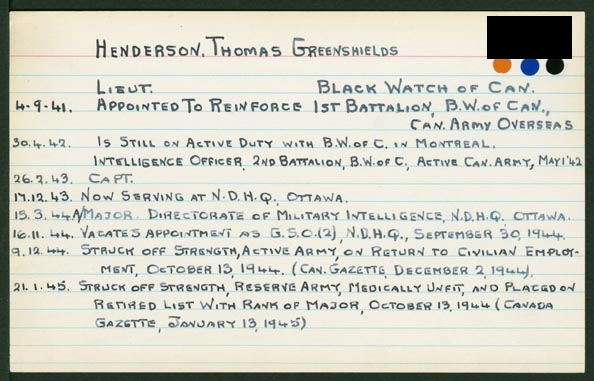 HENDERSON, THOMAS GREENSHIELDS
LIEUT. BLACK WATCH OF CAN.
4-9-41. APPOINTED TO REINFORCE 1ST BATTALION, B.W. OF CAN.,
CAN. ARMY OVERSEAS
30.4.42. IS STILL ON ACTIVE DUTY WITH B.W. OF C. IN MONTREAL.
INTELLIGENCE OFFICER, 2ND BATTALION, B.W. OF C., ACTIVE CAN. ARMY, MAY 1 '42
26.2.43. CAPT.
17.12.43. NOW SERVING AT N.D.H.Q., OTTAWA.
15.3.44 A/MAJOR. DIRECTORATE OF MILITARY INTELLIGENCE, N.D.H.Q. OTTAWA.
16.11.44. VACATES APPOINTMENT AS G.S.O.(2), N.D.H.Q., SEPTEMBER 30, 1944.
9.12.44. STRUCK OFF STRENGTH, ACTIVE ARMY, ON RETURN TO CIVILIAN EMPLOY-
MENT, OCTOBER 13, 1944. (CAN. GAZETTE, DECEMBER 2, 1944).
21.1.45. STRUCK OFF STRENGTH, RESERVE ARMY, MEDICALLY UNFIT, AND PLACED ON
RETIRED LIST WITH RANK OF MAJOR, OCTOBER 13, 1944 (CANADA
GAZETTE, JANUARY 13, 1945)